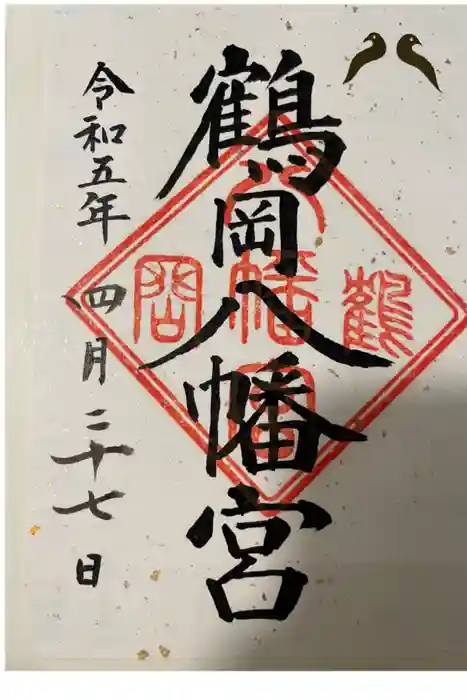 鶴岡八幡宮
令和五年四月二十七日
鶴
八幡宮
岡